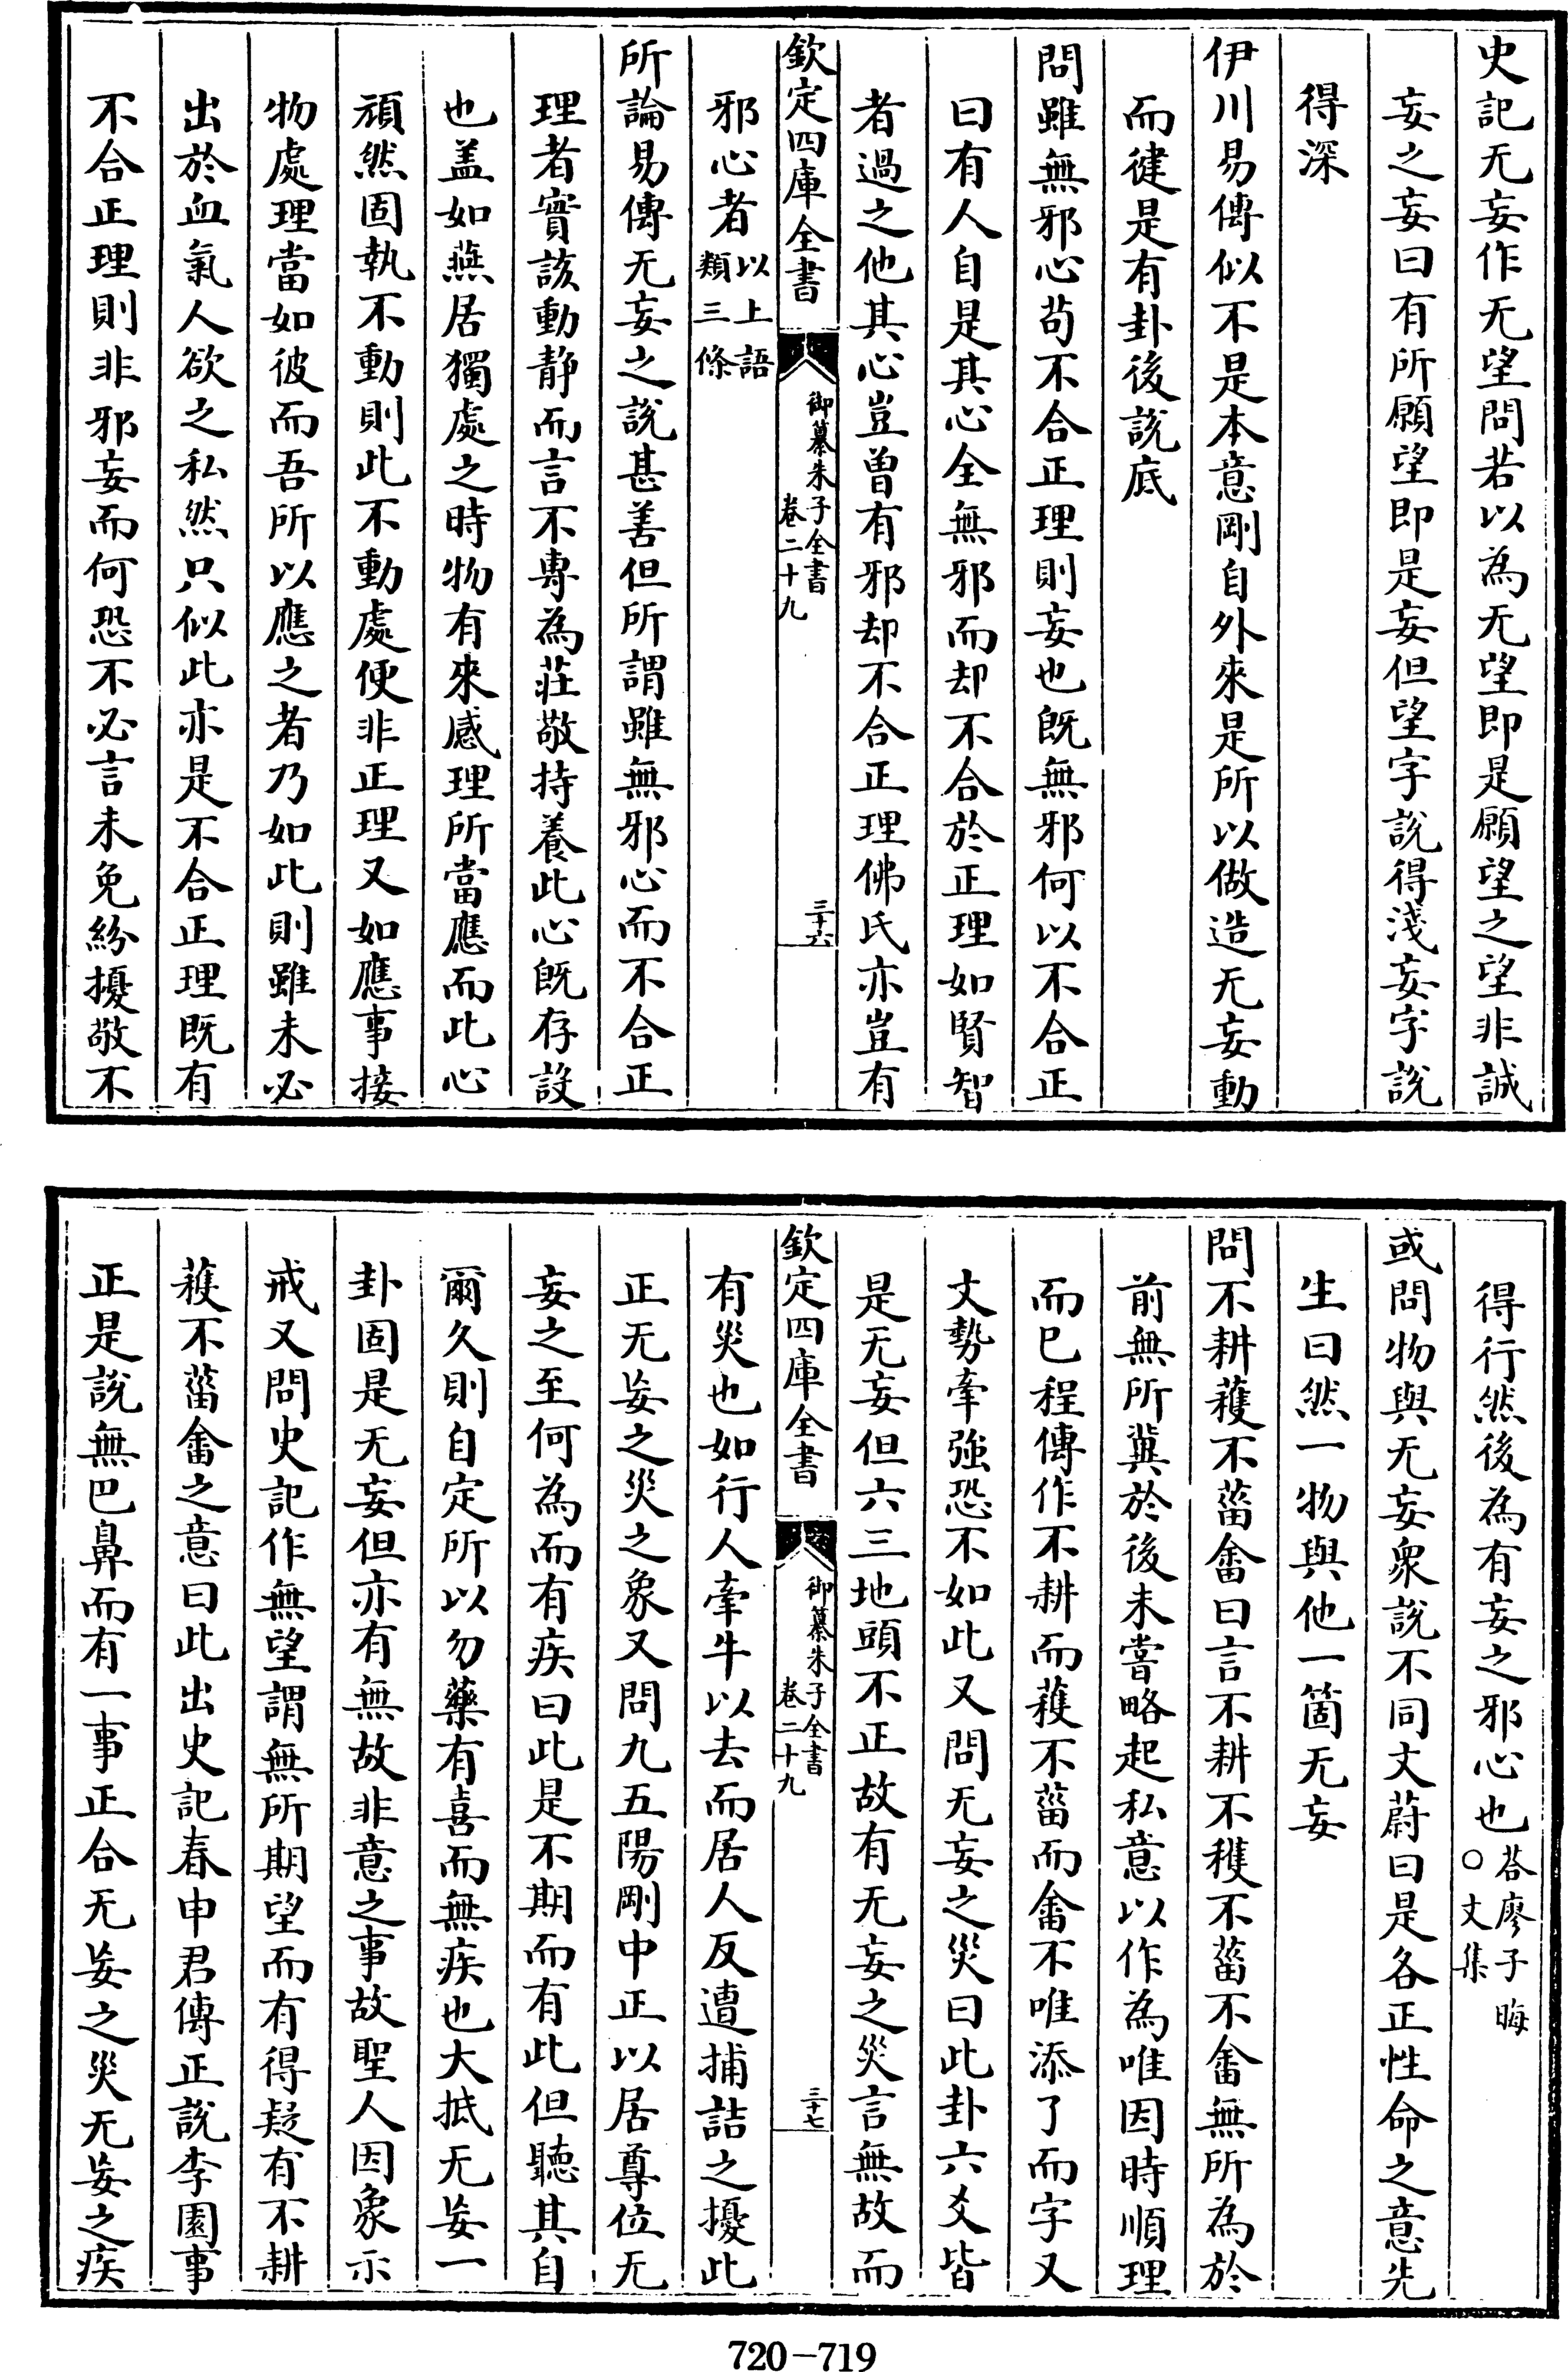 史記无妄作无望問若以為无望即是願望之望非誠
妄之妄曰有所願望即是妄但望字說得淺妄字說
得深
伊川易傳似不是本意剛自外來是所以做造无妄動
而健是有卦後說底
問雖無邪心苟不合正理則妄也既無邪何以不合正
曰有人自是其心全無邪而却不合於正理如賢智
者過之他其心豈曽有邪却不合正理佛氏亦豈有
欽定四庫全書
御纂朱子全書
卷二十九
三十六
邪心者以上語類三條
所論易傳无妄之說甚善但所謂雖無邪心而不合正
理者實該動静而言不專為莊敬持養此心既存設
也盖如燕居獨處之時物有來感理所當應而此心
頑然固執不動則此不動處便非正理又如應事接
物處理當如彼而吾所以應之者乃如此則雖未必
出於血氣人欲之私然只似此亦是不合正理既有
不合正理則非邪妄而何恐不必言未免紛擾敬不
得行然後為有妄之邪心也荅廖子晦○文集
或問物與无妄衆說不同文蔚曰是各正性命之意先
生曰然一物與他一箇无妄
問不耕穫不菑畬曰言不耕不穫不菑不畬無所為於
前無所冀於後未嘗略起私意以作為唯因時順理
而已程傳作不耕而穫不菑而畬不唯添了而字又
文勢牽強恐不如此又問无妄之災曰此卦六爻皆
是无妄但六三地頭不正故有无妄之災言無故而
欽定四庫全書
御纂朱子全書
卷二十九
三十七
有災也如行人牽牛以去而居人反遭捕詰之擾此
正无妄之災之象又問九五陽剛中正以居尊位无
妄之至何為而有疾曰此是不期而有此但聽其自
爾久則自定所以勿藥有喜而無疾也大抵无妄一
卦固是无妄但亦有無故非意之事故聖人因象示
戒又問史記作無望謂無所期望而有得疑有不耕
穫不菑畬之意曰此出史記春申君傳正說李園事
正是說無巴鼻而有一事正合无妄之災无妄之疾
720-719